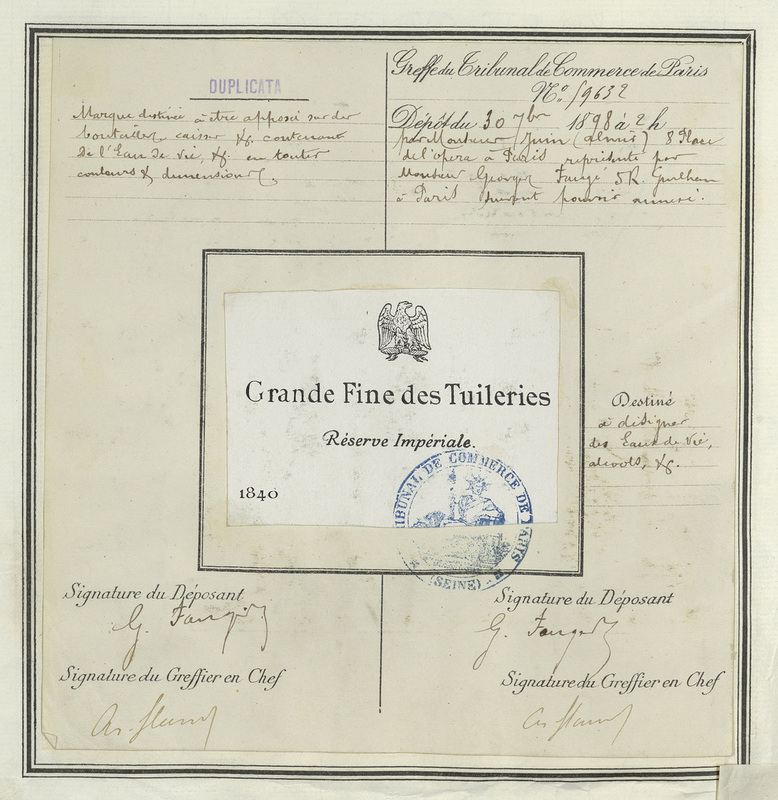 DUPLICATA
Marque destinée à être apposée sur des
bouteilles, caisses &c. contenant
de l'Eau de Vie, &c. en toutes
couleurs & dimensions.
Greffe du Tribunal de Commerce de Paris
N.o 59632
Dépôt du 30 7bre 1898 à 2 h
par Monsieur Juin 8 Place
de l'opéra à Paris représenté par
Monsieur Georges Faugé 5 R.
à Paris suivant pouvoir annexé.
Grande Fine des Tuileries
Réserve Impériale.
1840
TRIBUNAL DE COMMERCE DE PARIS
(SEINE)
Destiné
à désigner
des Eaux de Vie,
alcools, &c.
Signature du Déposant
Signature du Déposant
Signature du Greffier en Chef
Signature du Greffier en Chef